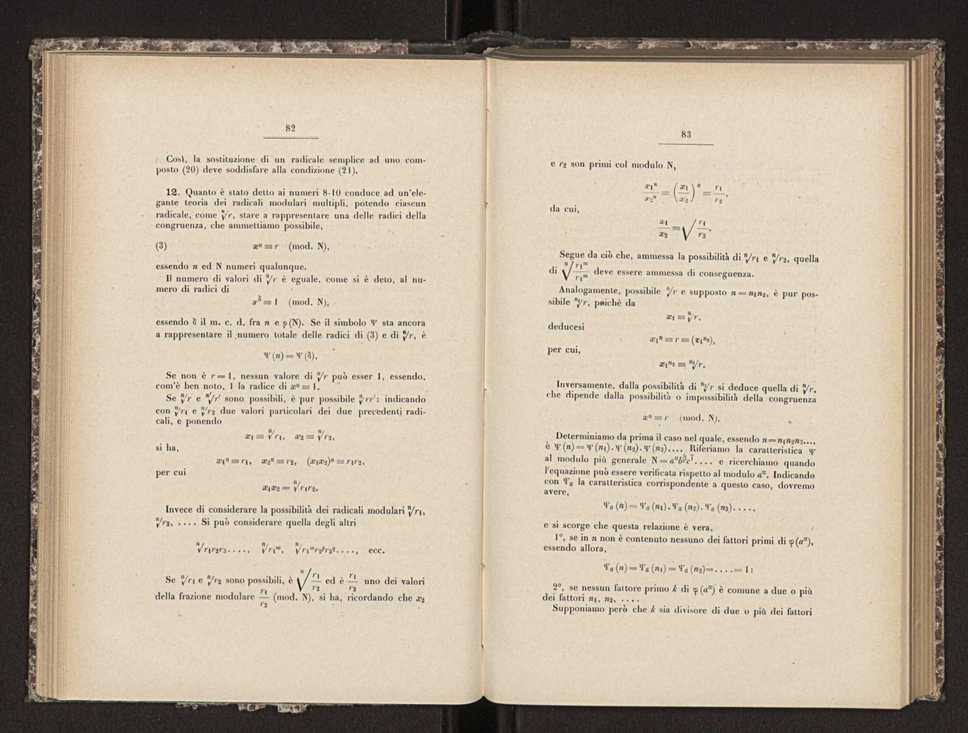 82
Così, la sostituzione di un radicale semplice ad uno com-
posto (20) deve soddisfare alla condizione (21).
12. Quanto è stato detto ai numeri 8-10 conduce ad un'ele-
gante teoria dei radicali modulari multipli, potendo ciascun
radicale, come ⁿ√r, stare a rappresentare una delle radici della
congruenza, che ammettiamo possibile,
(3) xⁿ ≡ r (mod. N),
essendo n ed N numeri qualunque.
Il numero di valori di ⁿ√r è eguale, come si è deto, al nu-
mero di radici di
x^δ ≡ 1 (mod. N),
essendo δ il m. c. d. fra n e φ(N). Se il simbolo Ψ sta ancora
a rappresentare il numero totale delle radici di (3) e di ⁿ√r, è
Ψ(n) = Ψ(δ),
Se non è r = 1, nessun valore di ⁿ√r può esser 1, essendo,
com'è ben noto, 1 la radice di xⁿ ≡ 1.
Se ⁿ√r e ⁿ√r' sono possibili, è pur possibile ⁿ√rr': indicando
con ⁿ√r₁ e ⁿ√r₂ due valori particolari dei due precedenti radi-
cali, e ponendo
x₁ ≡ ⁿ√r₁, x₂ ≡ ⁿ√r₂,
si ha,
x₁ⁿ ≡ r₁, x₂ⁿ ≡ r₂, (x₁x₂)ⁿ ≡ r₁r₂,
per cui
x₁x₂ ≡ ⁿ√r₁r₂.
Invece di considerare la possibilità dei radicali modulari ⁿ√r₁,
ⁿ√r₂, .... Si può considerare quella degli altri
ⁿ√r₁r₂r₃...., ⁿ√r₁ᵐ, ⁿ√r₁ᵐr₂ᵖr₃^q...., ecc.
Se ⁿ√r₁ e ⁿ√r₂ sono possibili, è ⁿ√(r₁/r₂) ed è r₁/r₂ uno dei valori
della frazione modulare r₁/r₂ (mod. N), si ha, ricordando che x₂
83
e r₂ son primi col modulo N,
x₁ⁿ/x₂ⁿ = (x₁/x₂)ⁿ = r₁/r₂,
da cui,
x₁/x₂ = √(r₁/r₂),
Segue da ciò che, ammessa la possibilità di ⁿ√r₁ e ⁿ√r₂, quella
di ⁿ√(r₁ᵐ/r₁ᵐ) deve essere ammessa di conseguenza.
Analogamente, possibile ⁿ√r e supposto n = n₁n₂, è pur pos-
sibile ⁿ¹√r, poichè da
x₁ ≡ ⁿ√r,
deducesi
x₁ⁿ ≡ r ≡ (x₁ⁿ²),
per cui,
x₁ⁿ² ≡ ⁿ¹√r,
Inversamente, dalla possibilità di ⁿ¹√r si deduce quella di ⁿ√r,
che dipende dalla possibilità o impossibilità della congruenza
xⁿ ≡ r (mod. N),
Determiniamo da prima il caso nel quale, essendo n = n₁n₂n₃...,
è Ψ(n) = Ψ(n₁).Ψ(n₂).Ψ(n₃).... Riferiamo la caratteristica Ψ
al modulo più generale N = a^αb^βc^γ.... e ricerchiamo quando
l'equazione può essere verificata rispetto al modulo a^α. Indicando
con Ψₐ la caratteristica corrispondente a questo caso, dovremo
avere,
Ψₐ(n) = Ψₐ(n₁).Ψₐ(n₂).Ψₐ(n₃)....,
e si scorge che questa relazione è vera,
1°, se in n non è contenuto nessuno dei fattori primi di φ(a^α),
essendo allora,
Ψₐ(n) = Ψₐ(n₁) = Ψₐ(n₂) = .... = 1;
2°, se nessun fattore primo k di φ(a^α) è comune a due o più
dei fattori n₁, n₂, ....
Supponiamo però che k sia divisore di due o più dei fattori